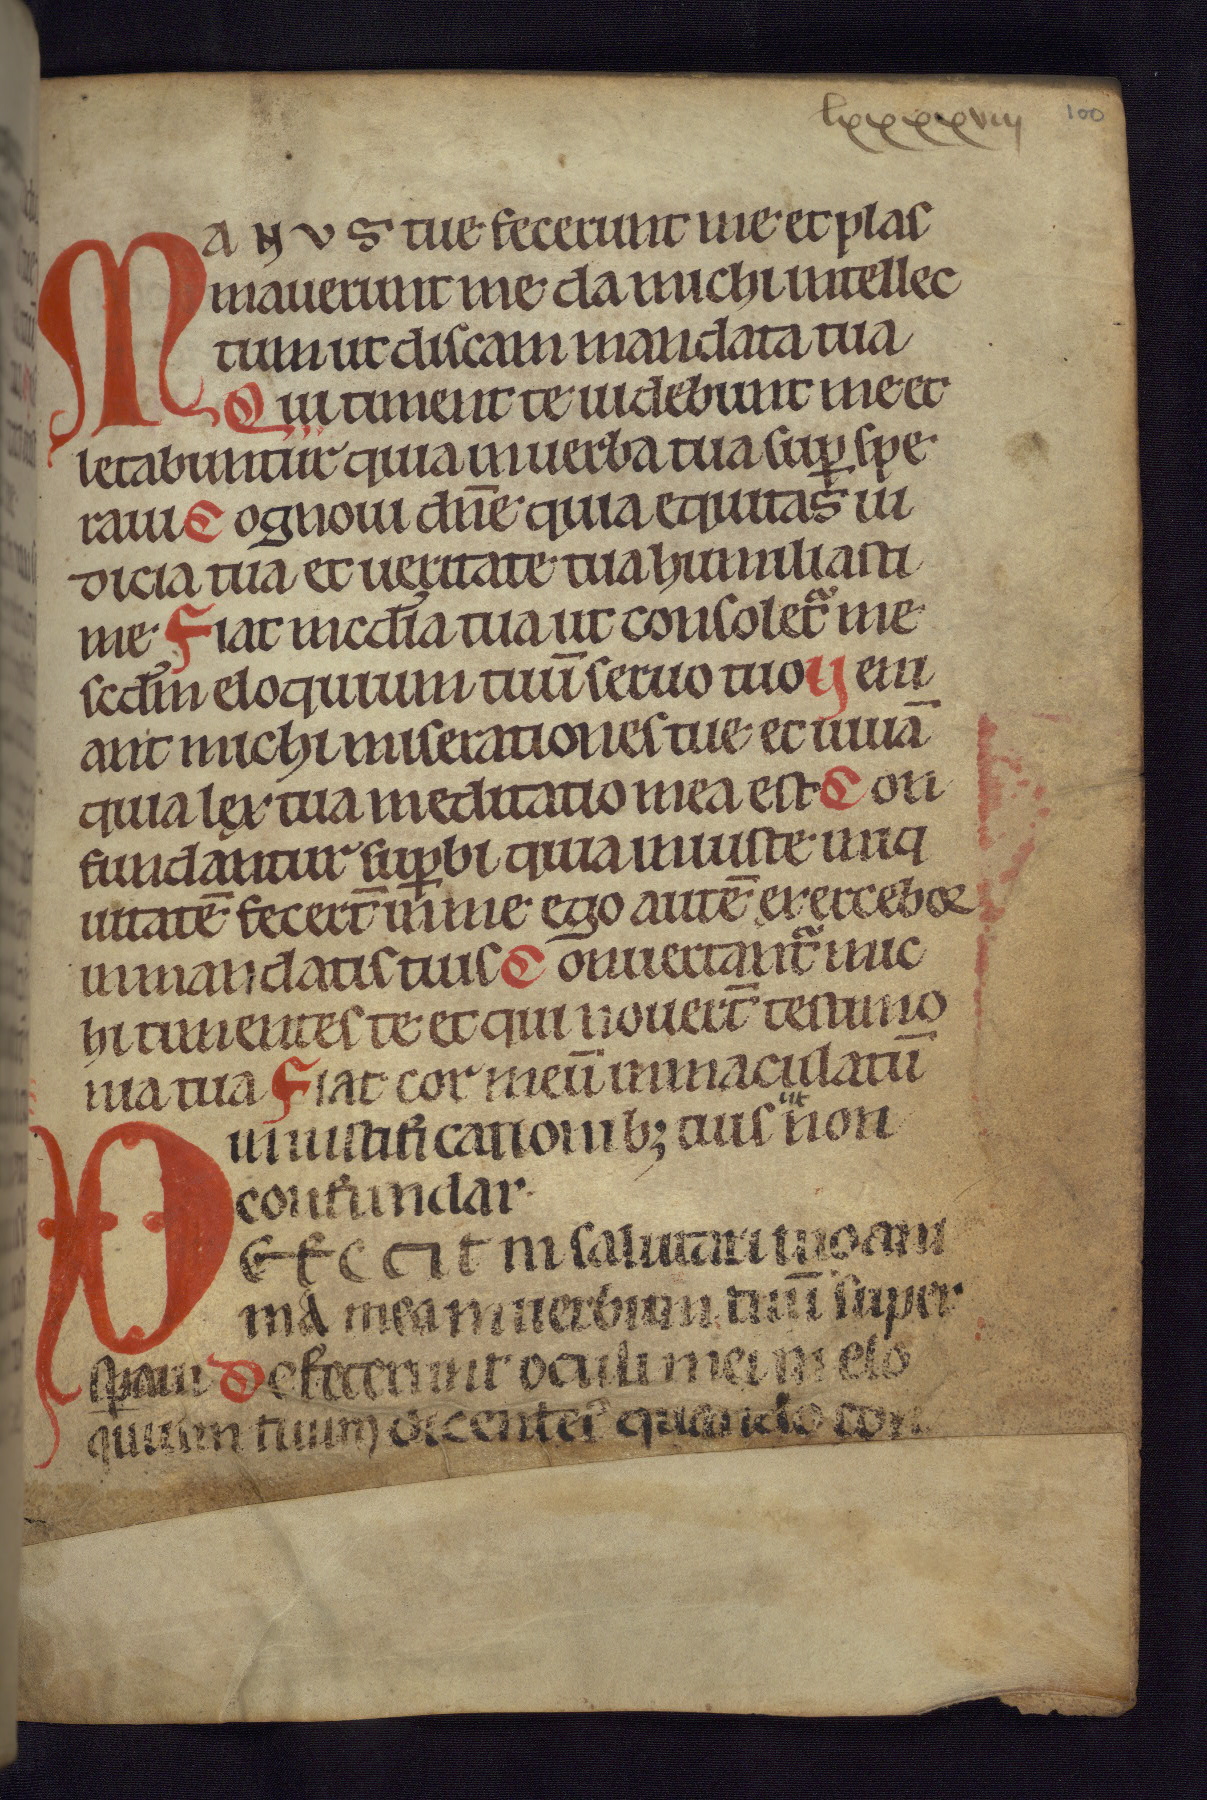 lxxxxviij 100
MANUS tue fecerunt me et plas
mauerunt me da michi intellec
tum ut discam mandata tua
Qui timent te uidebunt me et
letabuntur quia in uerba tua sup̱ spe
raui Cognoui dn̄e quia equitas iu
dicia tua et ueritate tua humiliasti
me Fiat mcd̄ia tua ut consolet᷑ me
scd̄m eloquium tuū seruo tuo Veni
ant michi miserationes tue et uiuā
quia lex tua meditatio mea est Con
fundantur sup̱bi quia iniuste iniq
uitatē fecert̄ in me ego autē exercebor
in mandatis tuis Conuertant᷑ mic
hi timentes te et qui nouert̄ testimo
nia tua Fiat cor meū inmaculatū
in iustificationib; tuis ut non
confundar
DEFECIT in salutari tuo ani
ma mea in uerbum tuū super
sp̱aui Defecerunt oculi mei in elo
quium tuum dicentes quando con